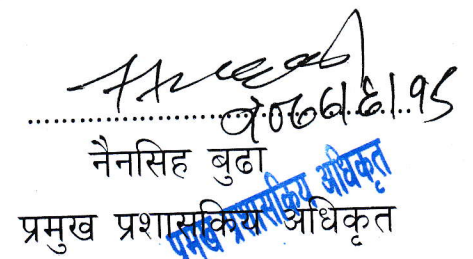 नैनसिह बुढा
प्रमुख प्रशासकिय अधिकृत
प्रमुख प्रशासकिय अधिकृत